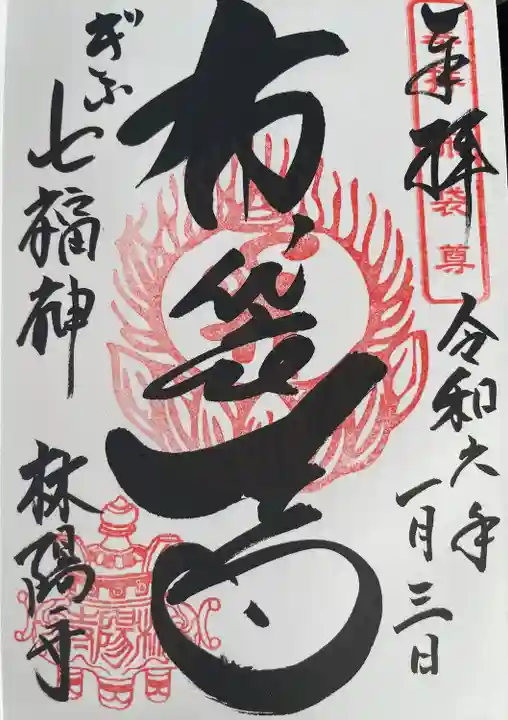 奉拝
令和六年
一月三日
布袋尊
ぎふ
七福神
林陽寺
林陽寺